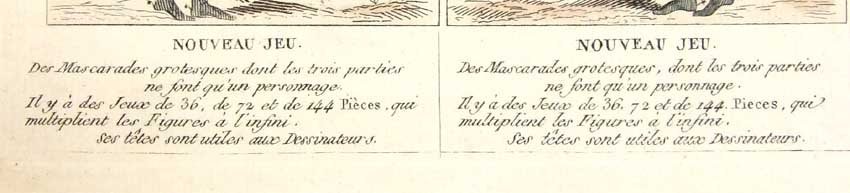 NOUVEAU JEU.
Des Mascarades grotesques dont les trois parties
ne font qu'un personnage.
Il y à des Jeux de 36, de 72 et de 144 Pièces, qui
multiplient les Figures à l'infini.
Ses têtes sont utiles aux Dessinateurs.
NOUVEAU JEU.
Des Mascarades grotesques, dont les trois parties
ne font qu'un personnage.
Il y à des Jeux de 36. 72 et de 144. Pieces, qui
multiplient les Figures à l'infini.
Ses têtes sont utiles aux Dessinateurs.